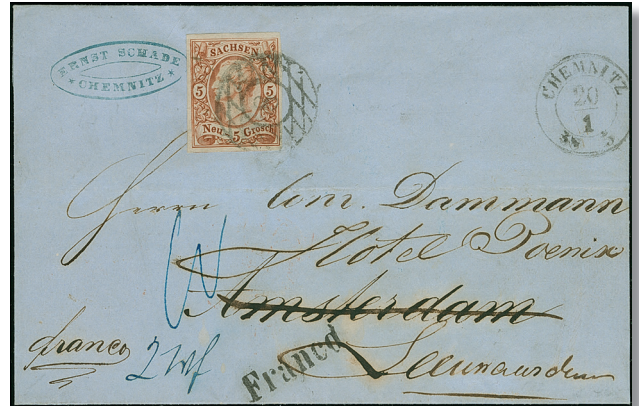 ERNST SCHADE
* CHEMNITZ *
SACHSEN
5 5
Neu 5 Grosch
CHEMNITZ
20
1
5
Herrn Com. Dammann
Hôtel Poenix
Amsterdam
Leeuwarden
franco
2 Wf
Franco